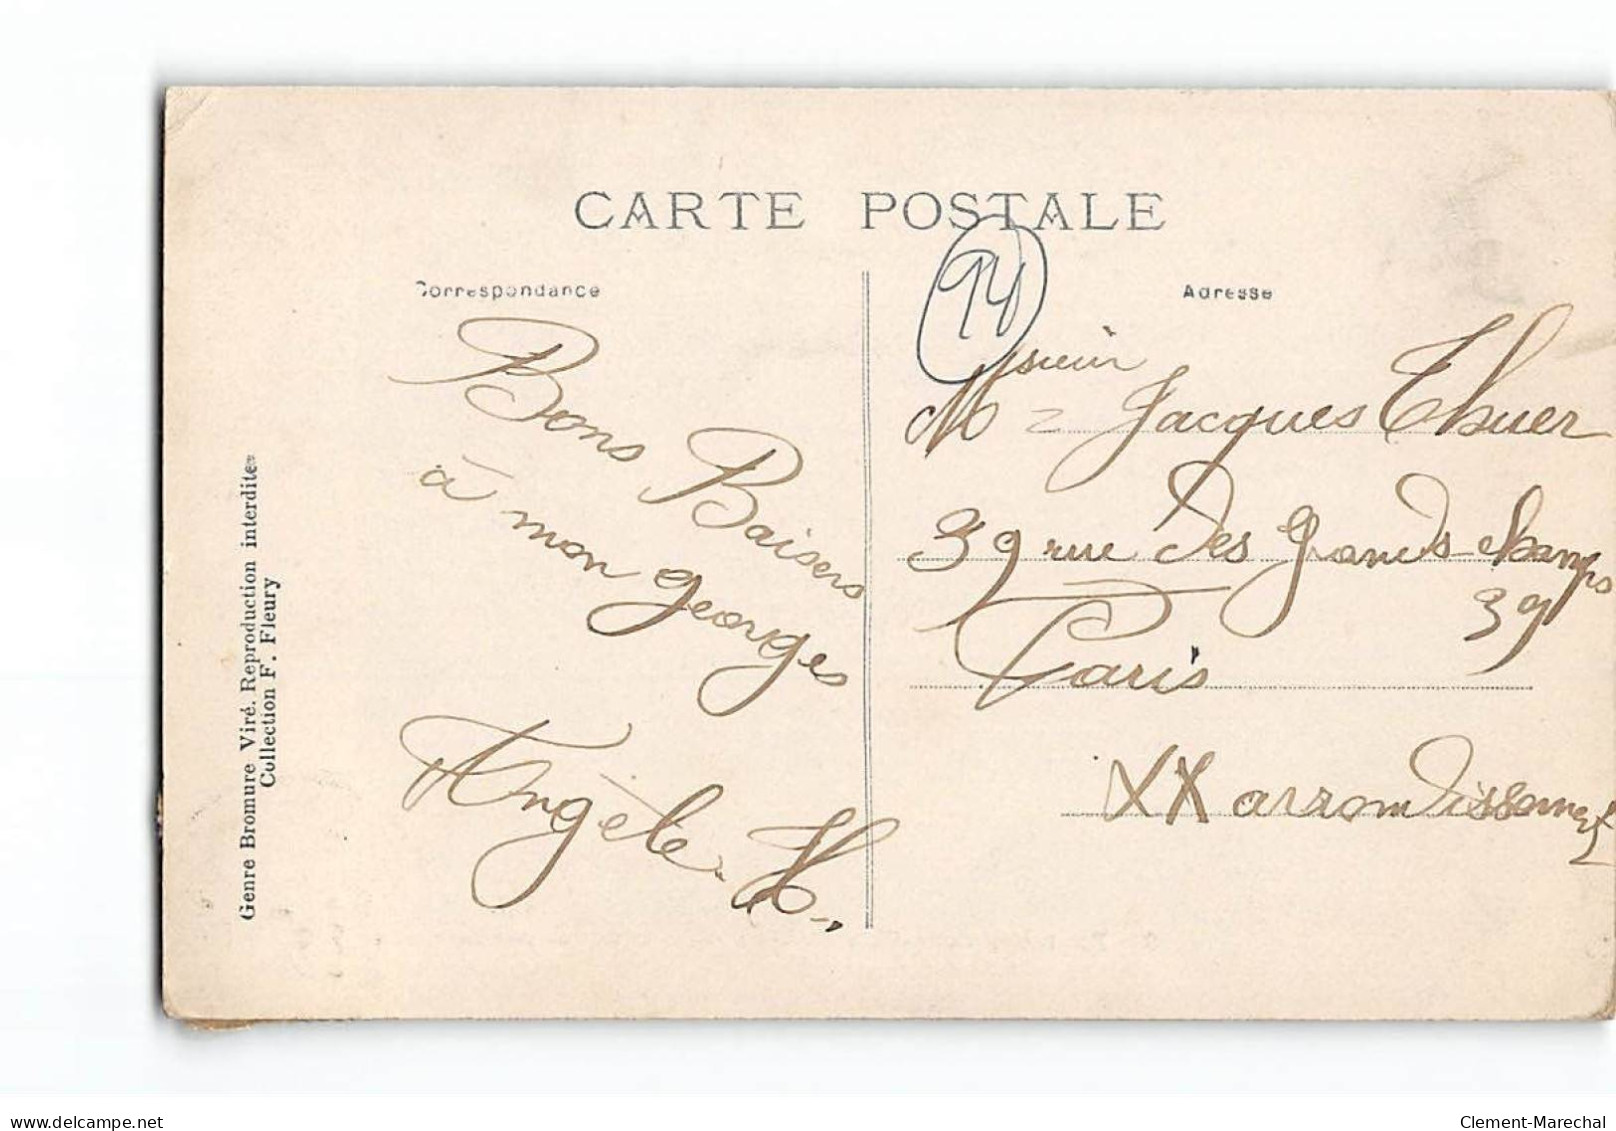 CARTE POSTALE
Correspondance
Adresse
94
Bons Baisers
à mon georges
Angèle H.
Msieur Jacques Thuer
39 rue des grands-champs
39
Paris
XX arrondissement
Genre Bromure Viré. Reproduction interdite
Collection F. Fleury
delcampe.net
Clement-Marechal